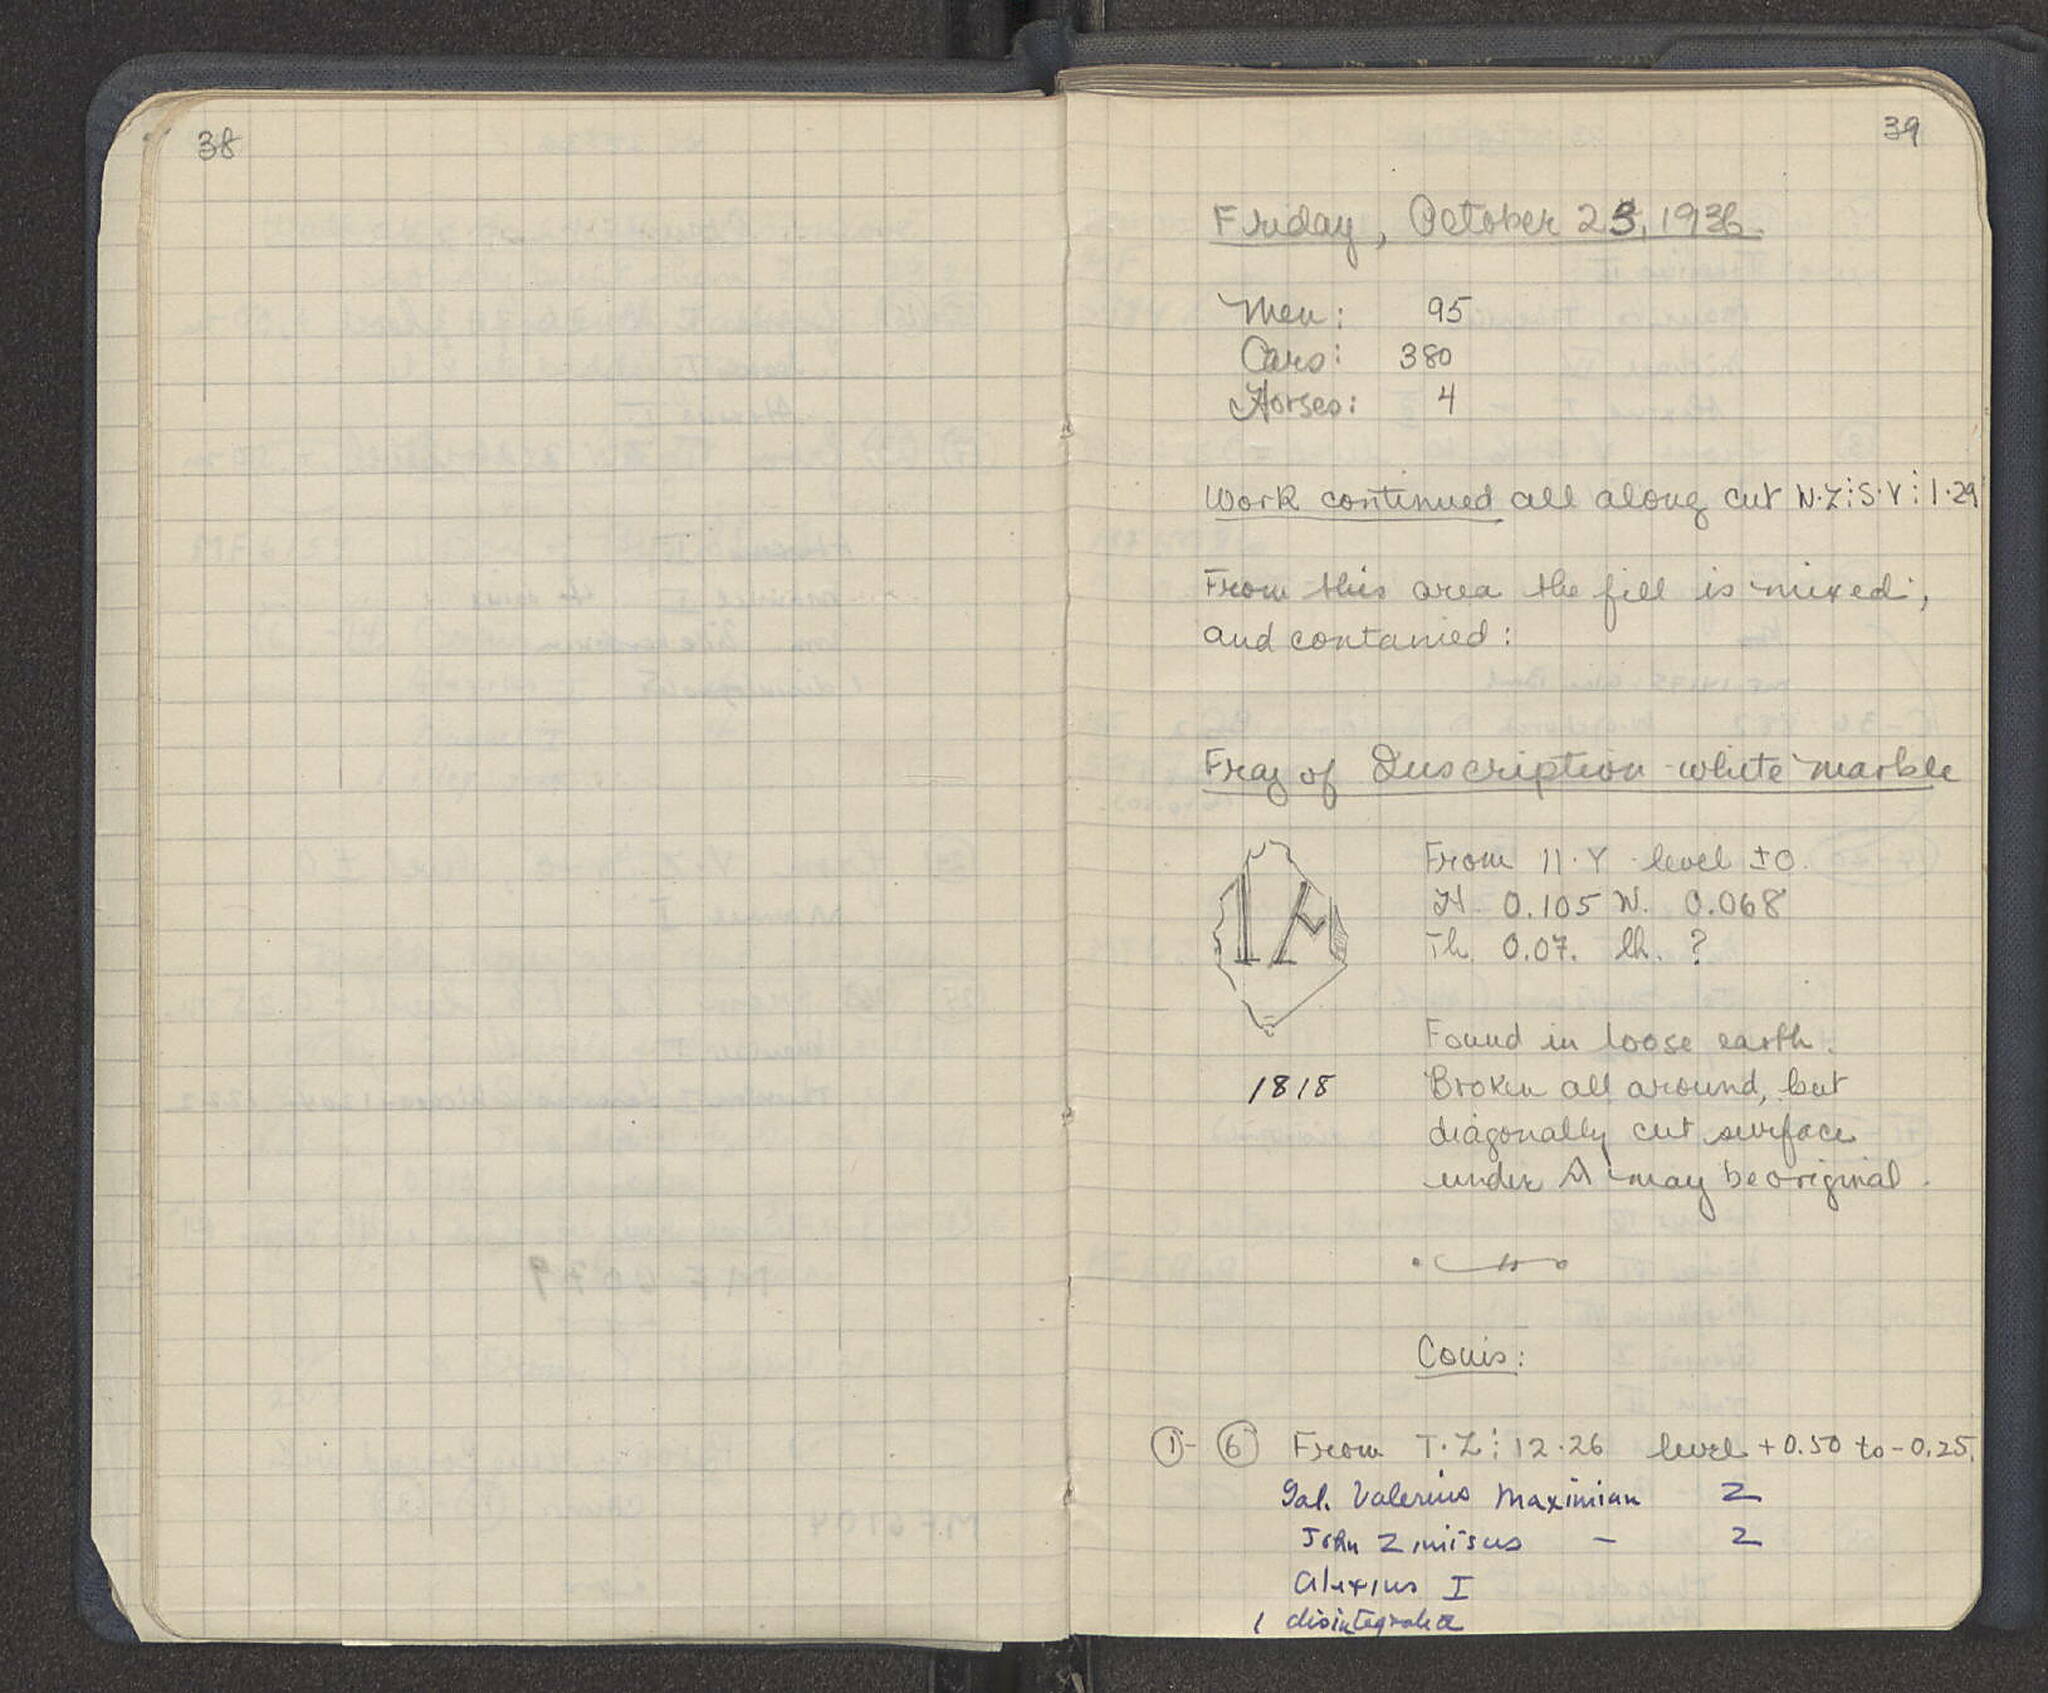 38
39
Friday, October 23, 1936.
Men: 95
Cars: 380
Horses: 4
Work continued all along cut N·Z:S·Y:1·29
From this area the fill is mixed;
and contained:
Frag of Inscription white marble
IA
From 11·Y level ±0.
H. 0.105 W. 0.068
Th. 0.07. lh. ?
Found in loose earth.
1818
Broken all around, but
diagonally cut surface
under A may be original.
Coins:
1 - 6 From T·Z:12·26 level +0.50 to -0.25.
Gal. Valerius Maximian 2
John Zimisus - 2
Alexius I
1 disintegrated